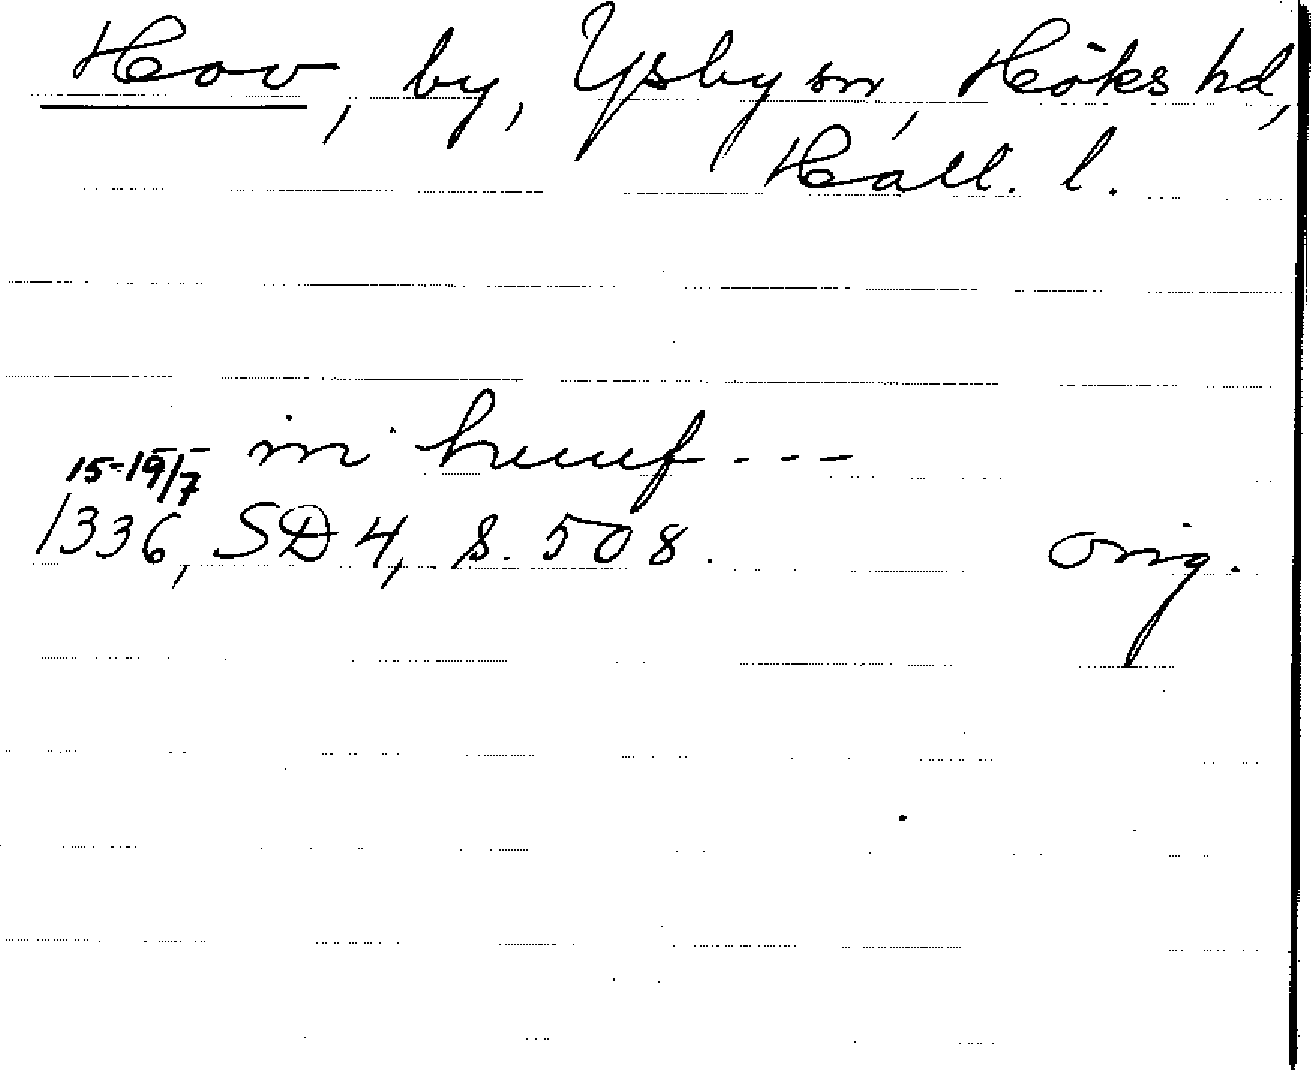 Hov, by, Ysby sn, Höks hd,
Hall. l.
in huuf ---
15-19/7
1336, SD 4, s. 508. orig.